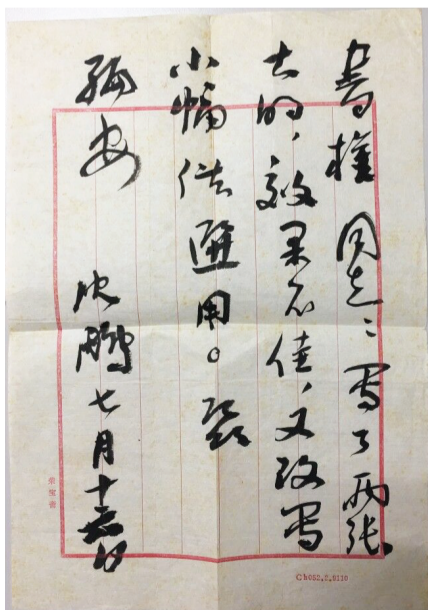 書權同志：写了两张
大的，效果不佳，又改写
小幅供選用。
编安
沈鹏七月十日
荣宝斋
Ch082.2.9110